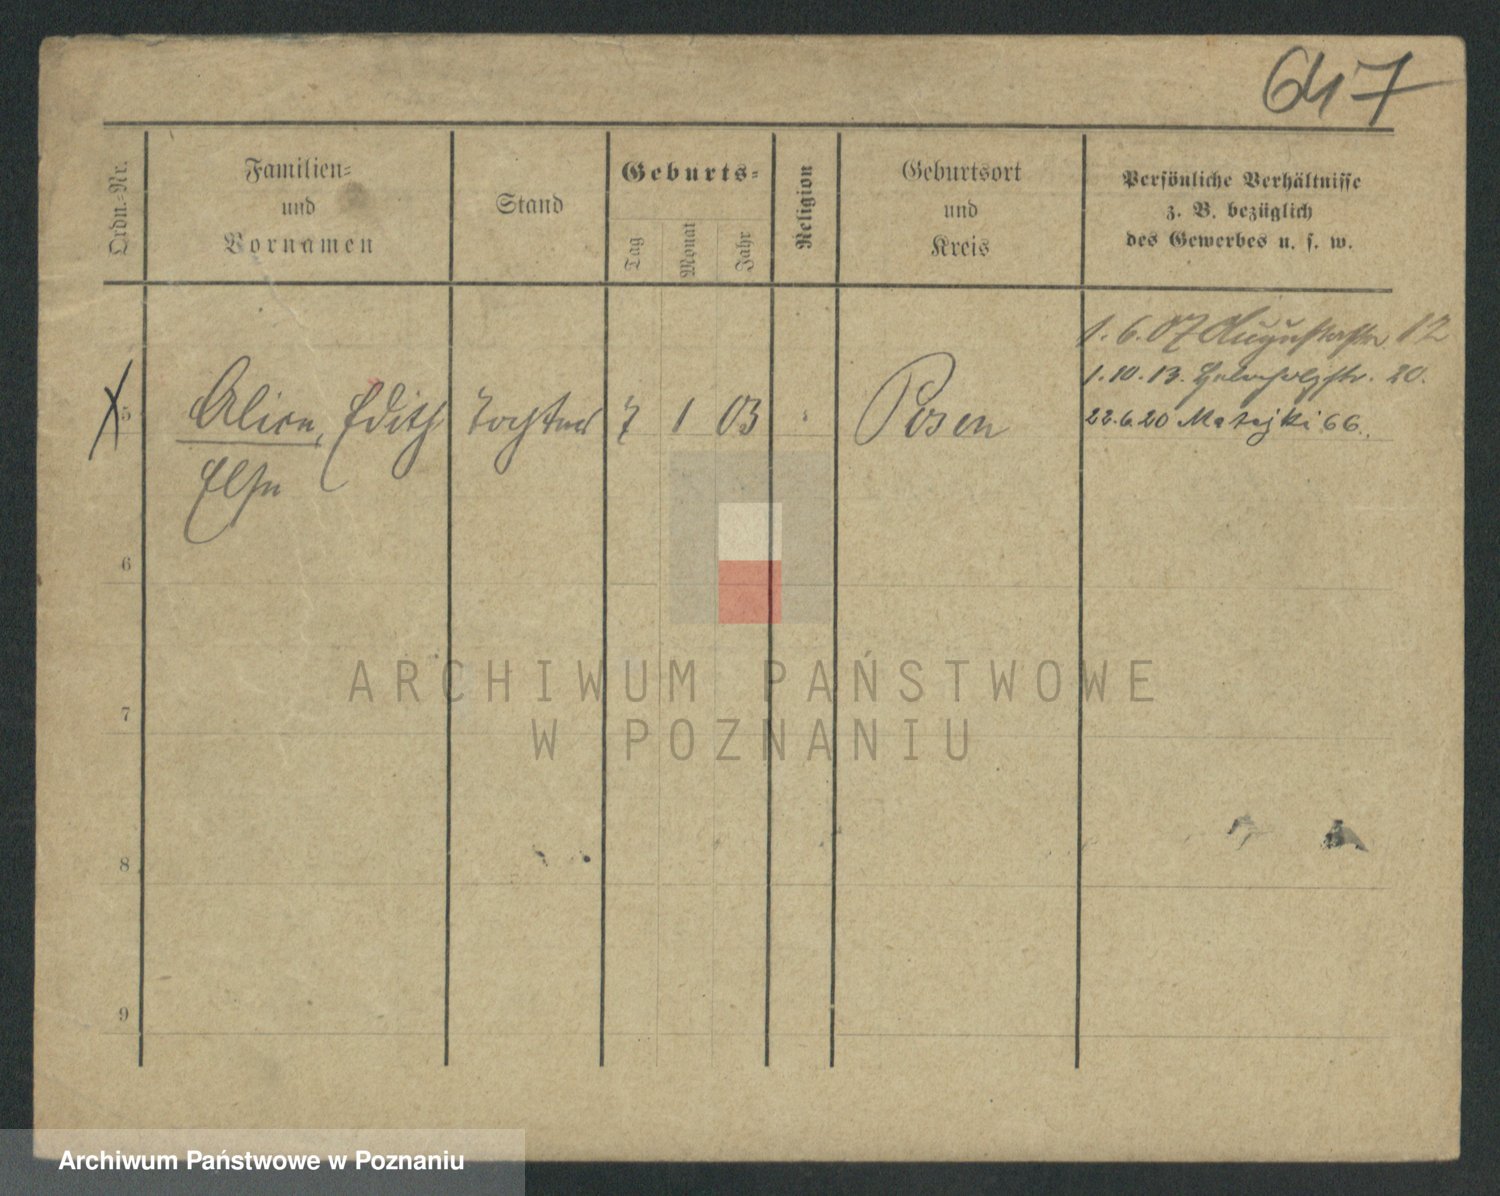 647
Ordn.-Nr.
Familien-
und
Vornamen
Stand
Geburts-
Tag
Monat
Jahr
Religion
Geburtsort
und
Kreis
Persönliche Verhältnisse
z. B. bezüglich
des Gewerbes u. s. w.
1. 6. 07 Augustastr 12
1. 10. 13. 20.
5 Alice, Edith Tochter 7 1 03 Posen 22.6.20 Matejki 66.
Else
6
7
8
9
ARCHIWUM PAŃSTWOWE
W POZNANIU
Archiwum Państwowe w Poznaniu